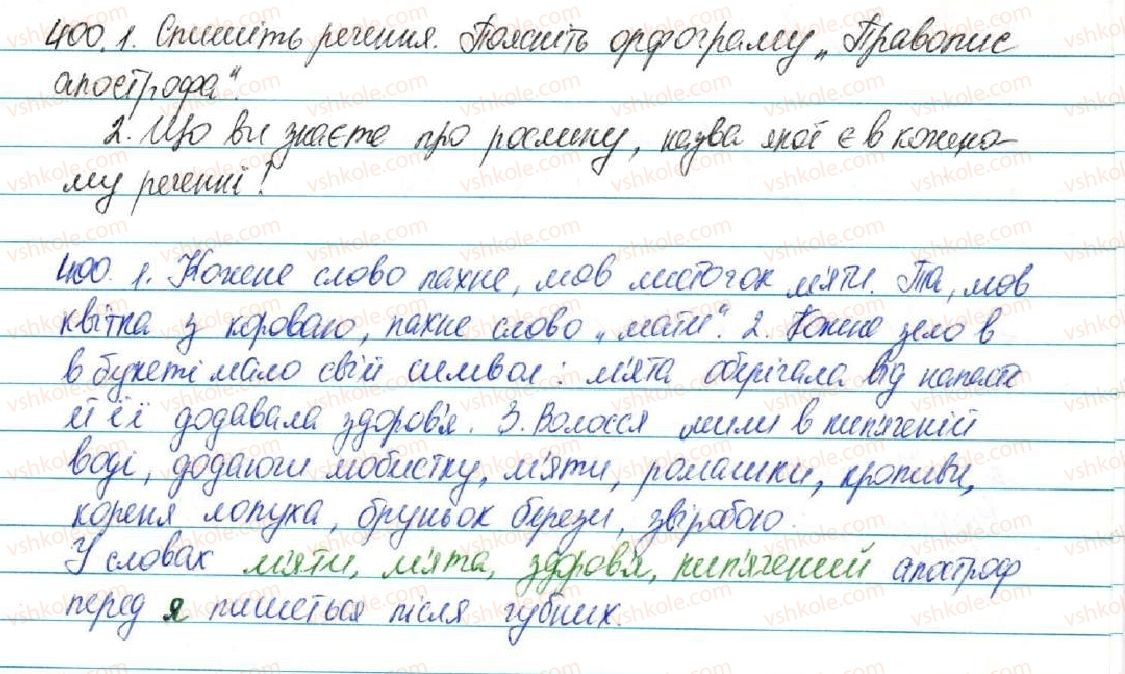 400. 1. Спишіть речення. Поясніть орфограму „Правопис
апострофа“.
2. Що ви знаєте про рослину, назва якої є в кожно-
му реченні?
400. 1. Кожне слово пахне, мов листочок м'яти. Та, мов
квітка з короваю, пахне слово „мати“. 2. Кожне зело в
в букеті мало свій символ: м'ята оберігала від напасті
й її додавала здоров'я. 3. Волосся мили в кип'яченій
воді, додаючи любистку, м'яти, ромашки, кропиви,
кореня лопуха, бруньок берези, звіробою.
У словах м'яти, м'ята, здоров'я, кип'ячений апостроф
перед я пишеться після губних.